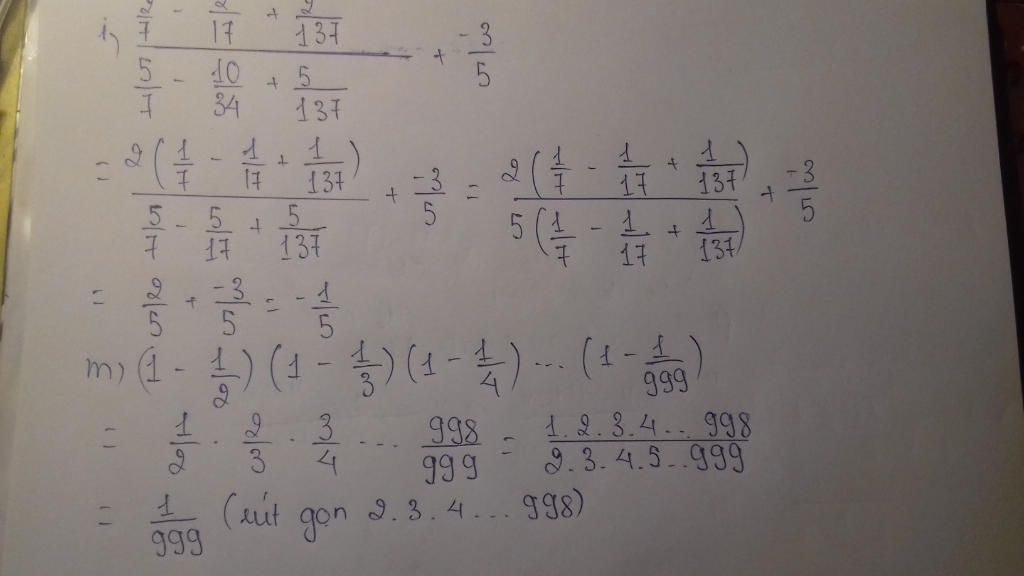 i) (2/7 - 2/17 + 2/137)/(5/7 - 10/34 + 5/137) + -3/5
= 2(1/7 - 1/17 + 1/137)/(5/7 - 5/17 + 5/137) + -3/5 = 2(1/7 - 1/17 + 1/137)/5(1/7 - 1/17 + 1/137) + -3/5
= 2/5 + -3/5 = -1/5
m) (1 - 1/2)(1 - 1/3)(1 - 1/4) ... (1 - 1/999)
= 1/2 . 2/3 . 3/4 ... 998/999 = 1.2.3.4...998/2.3.4.5...999
= 1/999 (rút gọn 2.3.4...998)